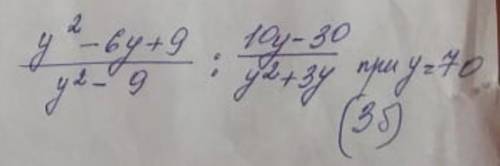 (y² - 6y + 9)/(y² - 9) : (10y - 30)/(y² + 3y) при y = 70
(3б)